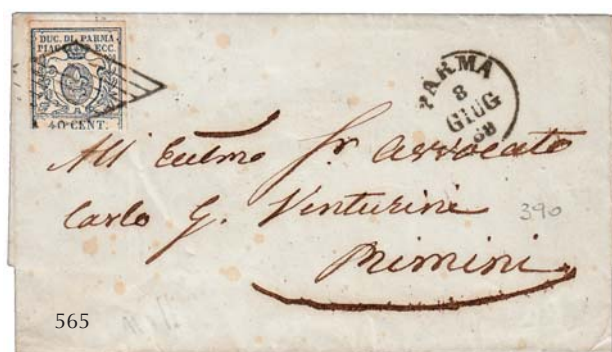 DUC. DI PARMA
PIAC. ECC.
40 CENT.
PARMA
8
GIUG
All' Ecclmo Sr Avvocato
Carlo G. Venturini
Rimini
390
565